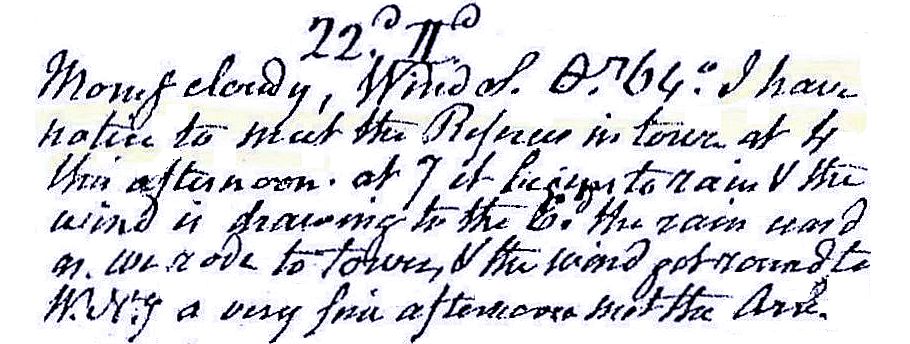 22.d II d
Morng cloudy, Wind S. θ.r 64.° I have
notice to meet the Referees in town at 4
this afternoon. at 7 it begins to rain & the
wind is drawing to the E.d the rain ceasd
as we rode to town, & the wind got round to
W. & a very fine afternoon met the Arb.